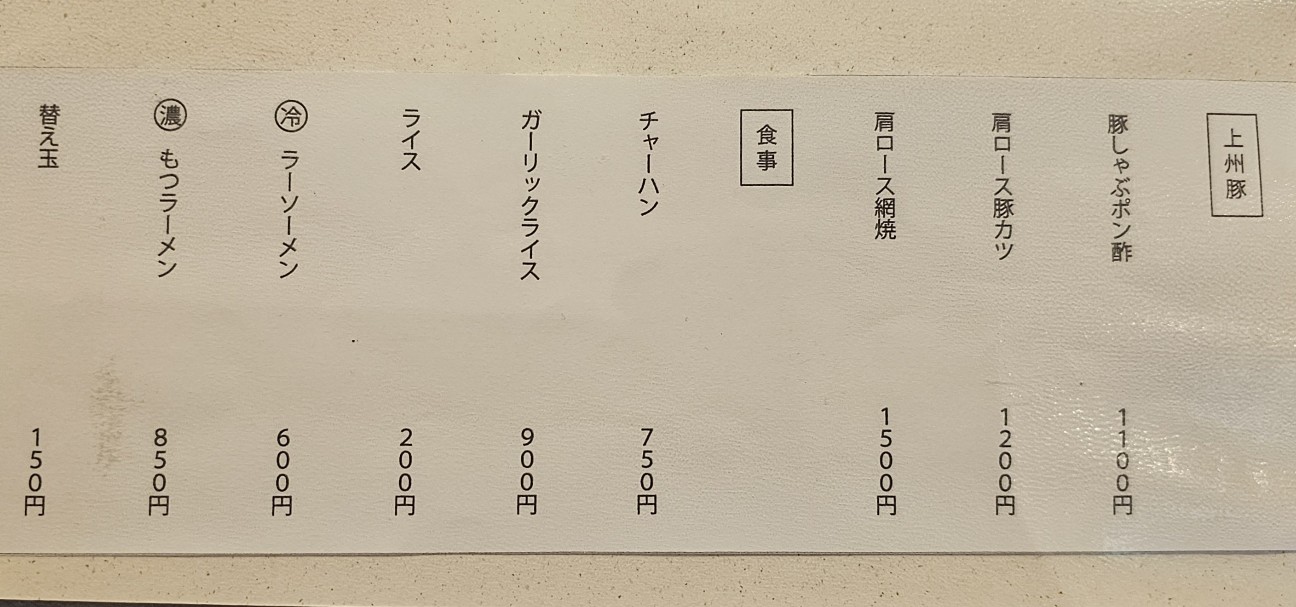 上州豚
豚しゃぶポン酢 1100円
肩ロース豚カツ 1200円
肩ロース網焼 1500円
食事
チャーハン 750円
ガーリックライス 900円
ライス 200円
㊗冷 ラーソーメン 600円
濃 もつラーメン 850円
替え玉 150円